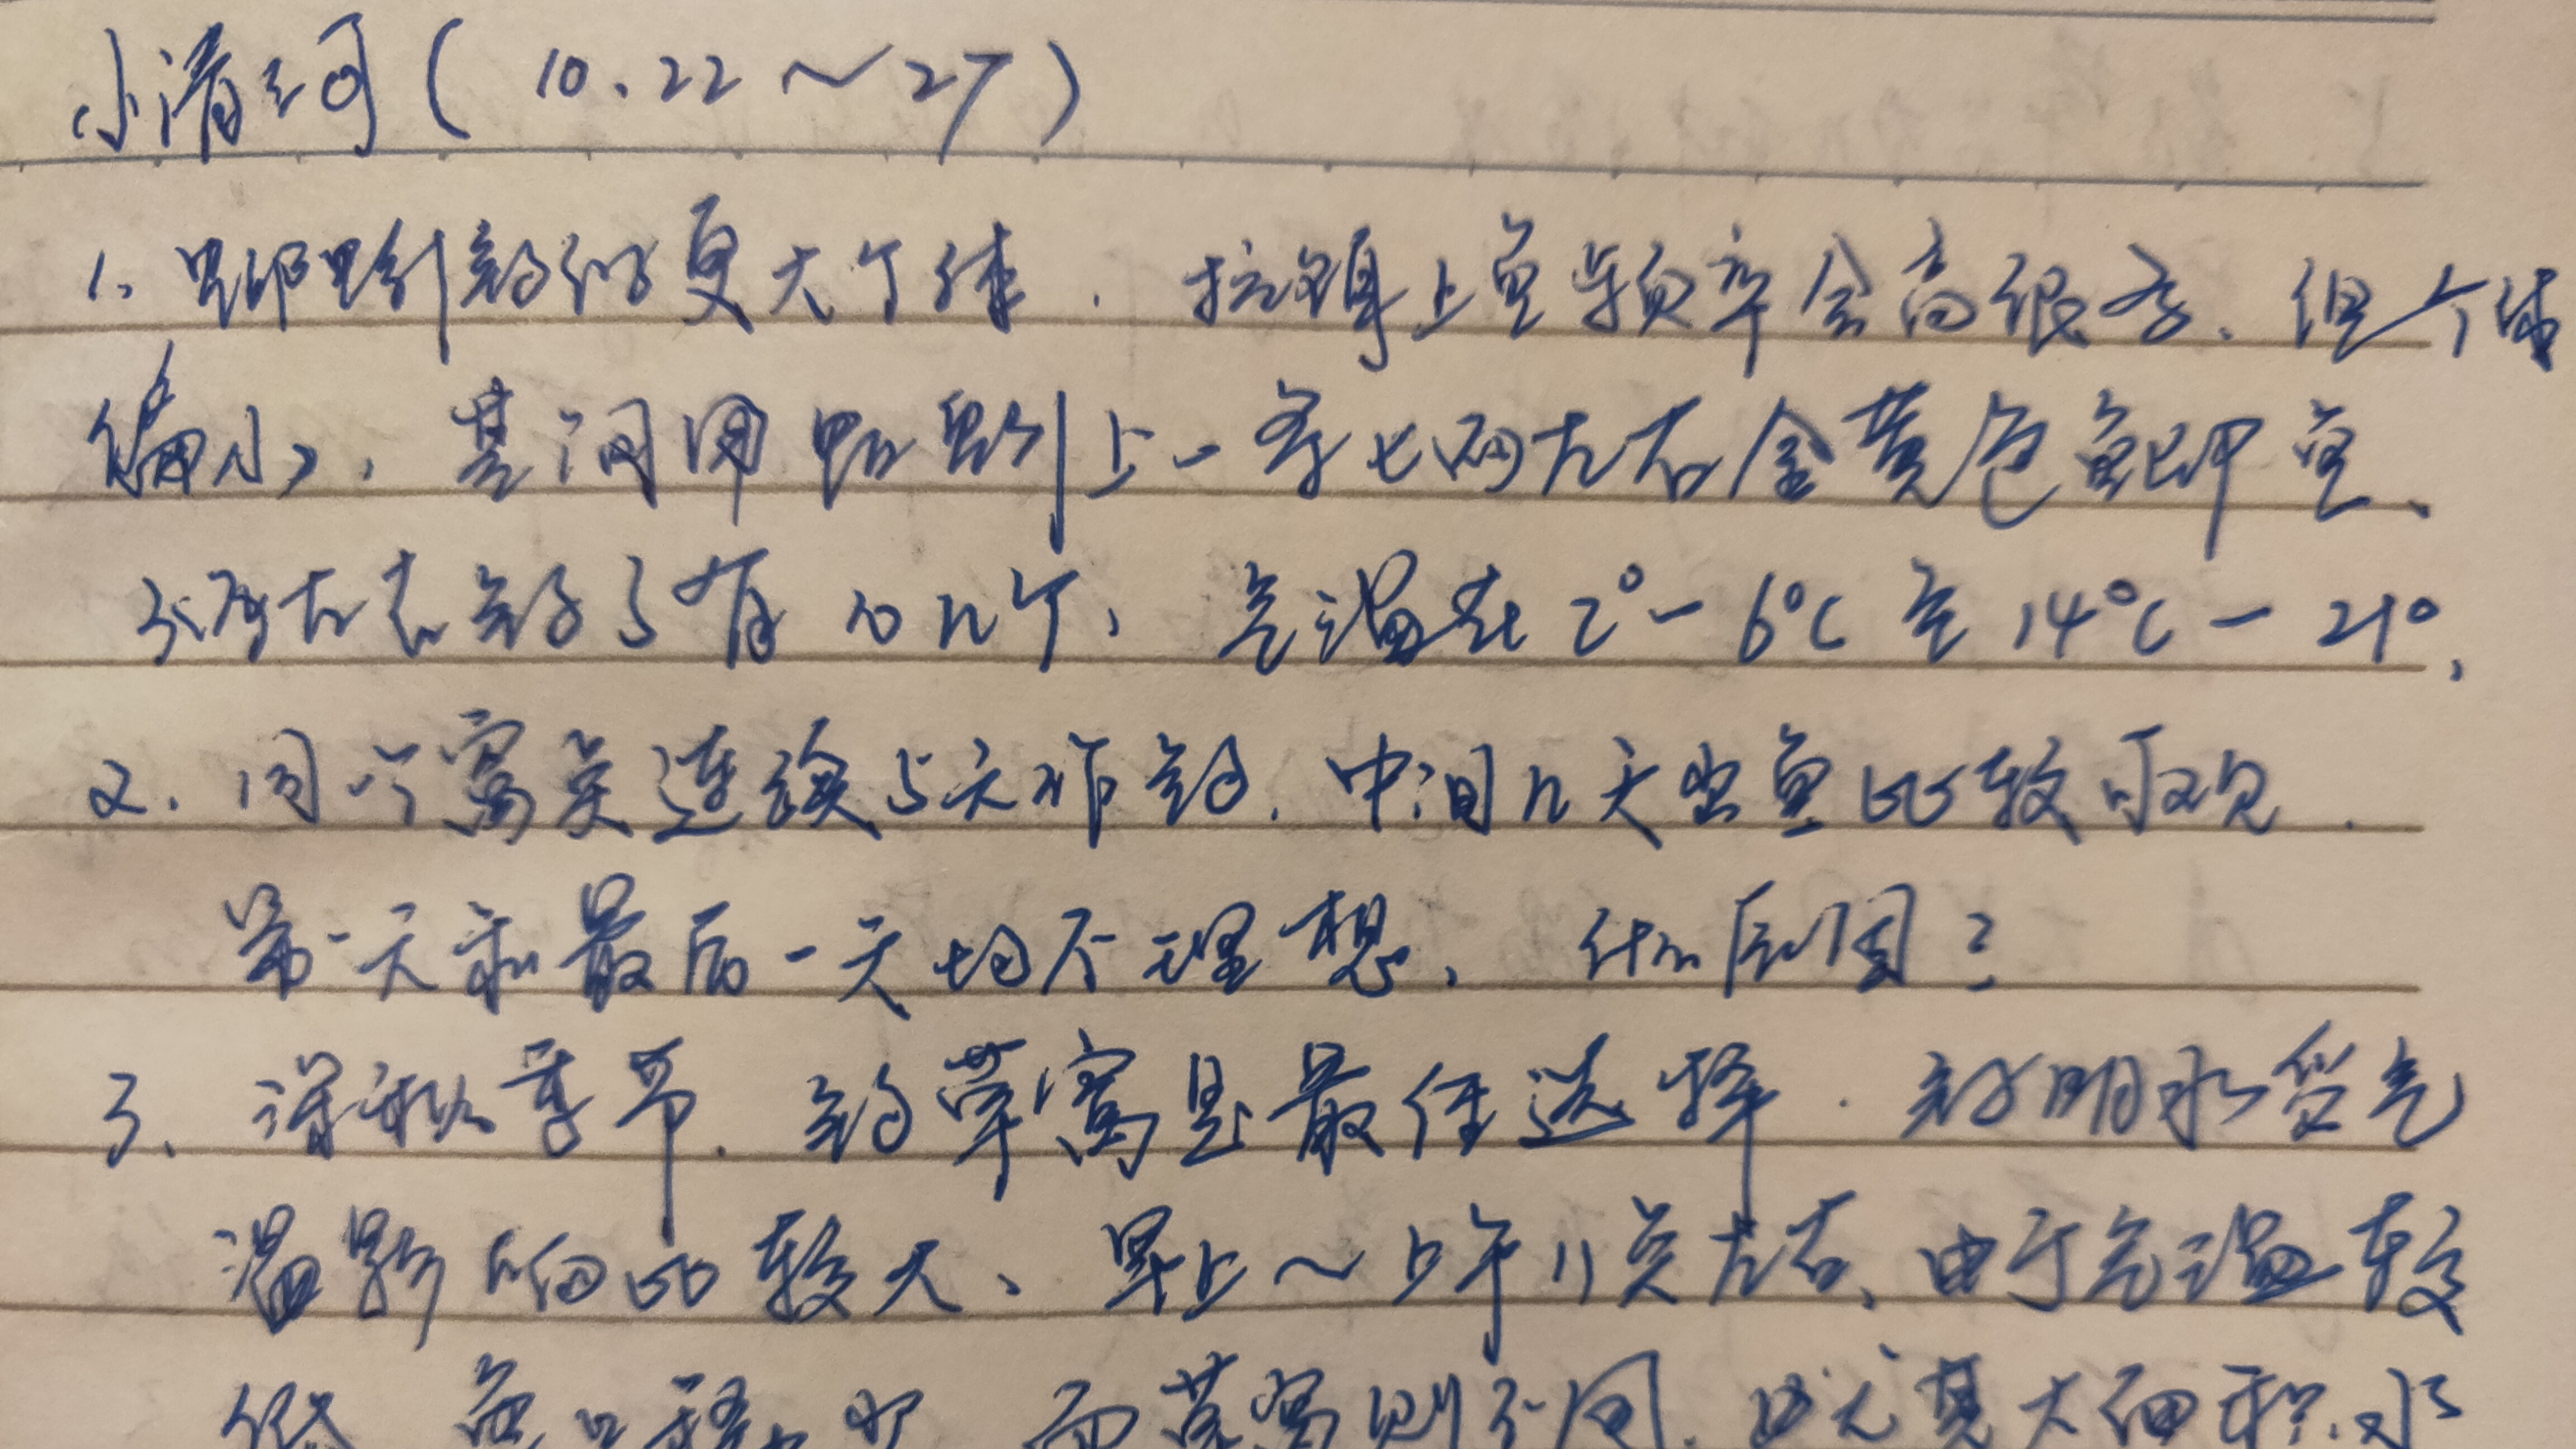 小清河（10.22～27）
1、蚯蚓钓获更大个体．拉饵上鱼频率会高很多．但个体
偏小，期间用蚯蚓上一条七两左右金黄色鲫鱼、
三两左右钓了有10几个，气温在2°－6℃至14℃－21°，
2．同个窝点连续5天作钓．中间几天出鱼比较可观．
第一天和最后一天均不理想，什么原因？
3、深秋季节．钓草窝是最佳选择．钓明水受气
温影响比较大、早上～上午11点左右、由于气温较
低 鱼口 而草窝则不同．